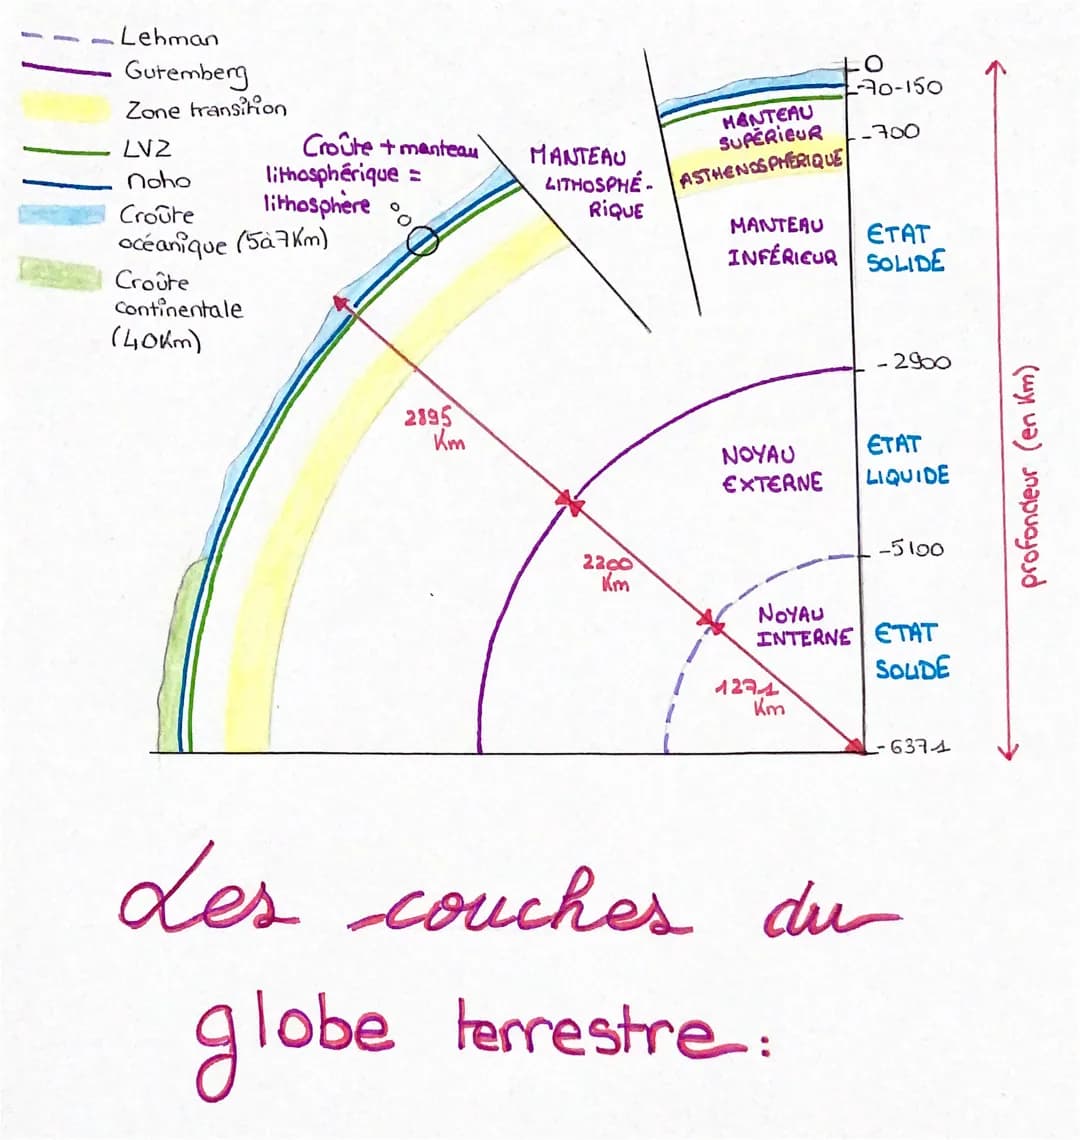 Lehman
Gutemberg
Zone transition
LVZ
Moho
Croûte
océanique (5à7Km)
Croûte
continentale
(40Km)
Croûte + manteau
lithosphérique =
lithosphère
MANTEAU
LITHOSPHÉ-
RIQUE
MANTEAU
SUPÉRIEUR
ASTHENOSPHÉRIQUE
MANTEAU
INFÉRIEUR
0
-70-150
-700
ETAT
SOLIDE
-2900
NOYAU
EXTERNE
ETAT
LIQUIDE
-5100
NOYAU
INTERNE
ETAT
SOLIDE
-6371
2895
Km
2200
Km
1271
Km
profondeur (en Km)
Les couches du
globe terrestre :